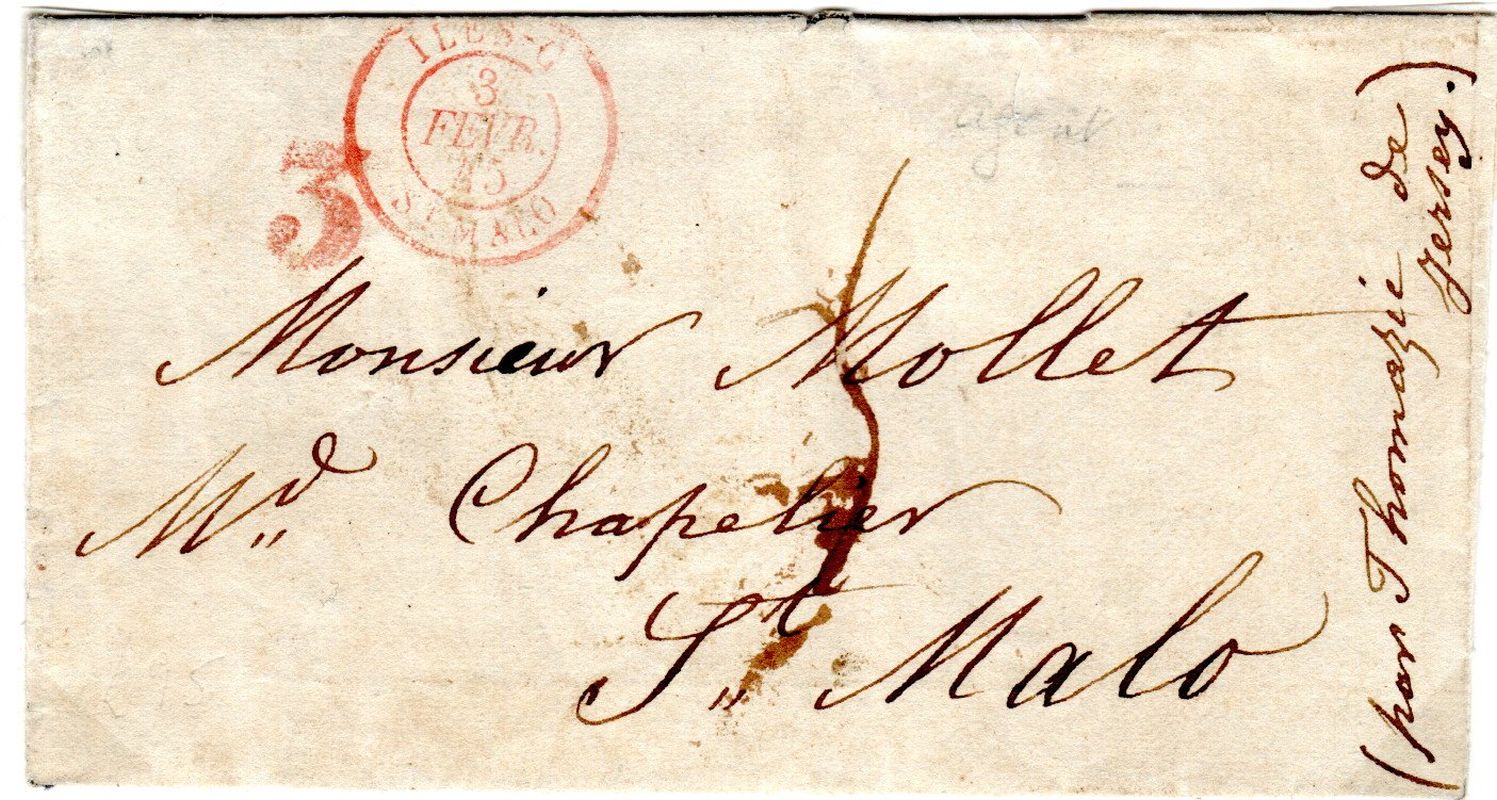 ILES-C
3
FEVR.
45
ST MALO
3
agent
Monsieur Mollet
Md. Chapelier
St. Malo
(par Thomazie de
Jersey.)